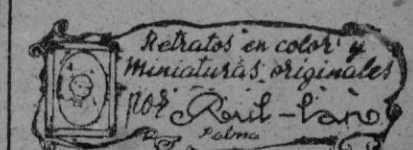 Retratos en color y
Miniaturas originales
por Raúl-
Palma